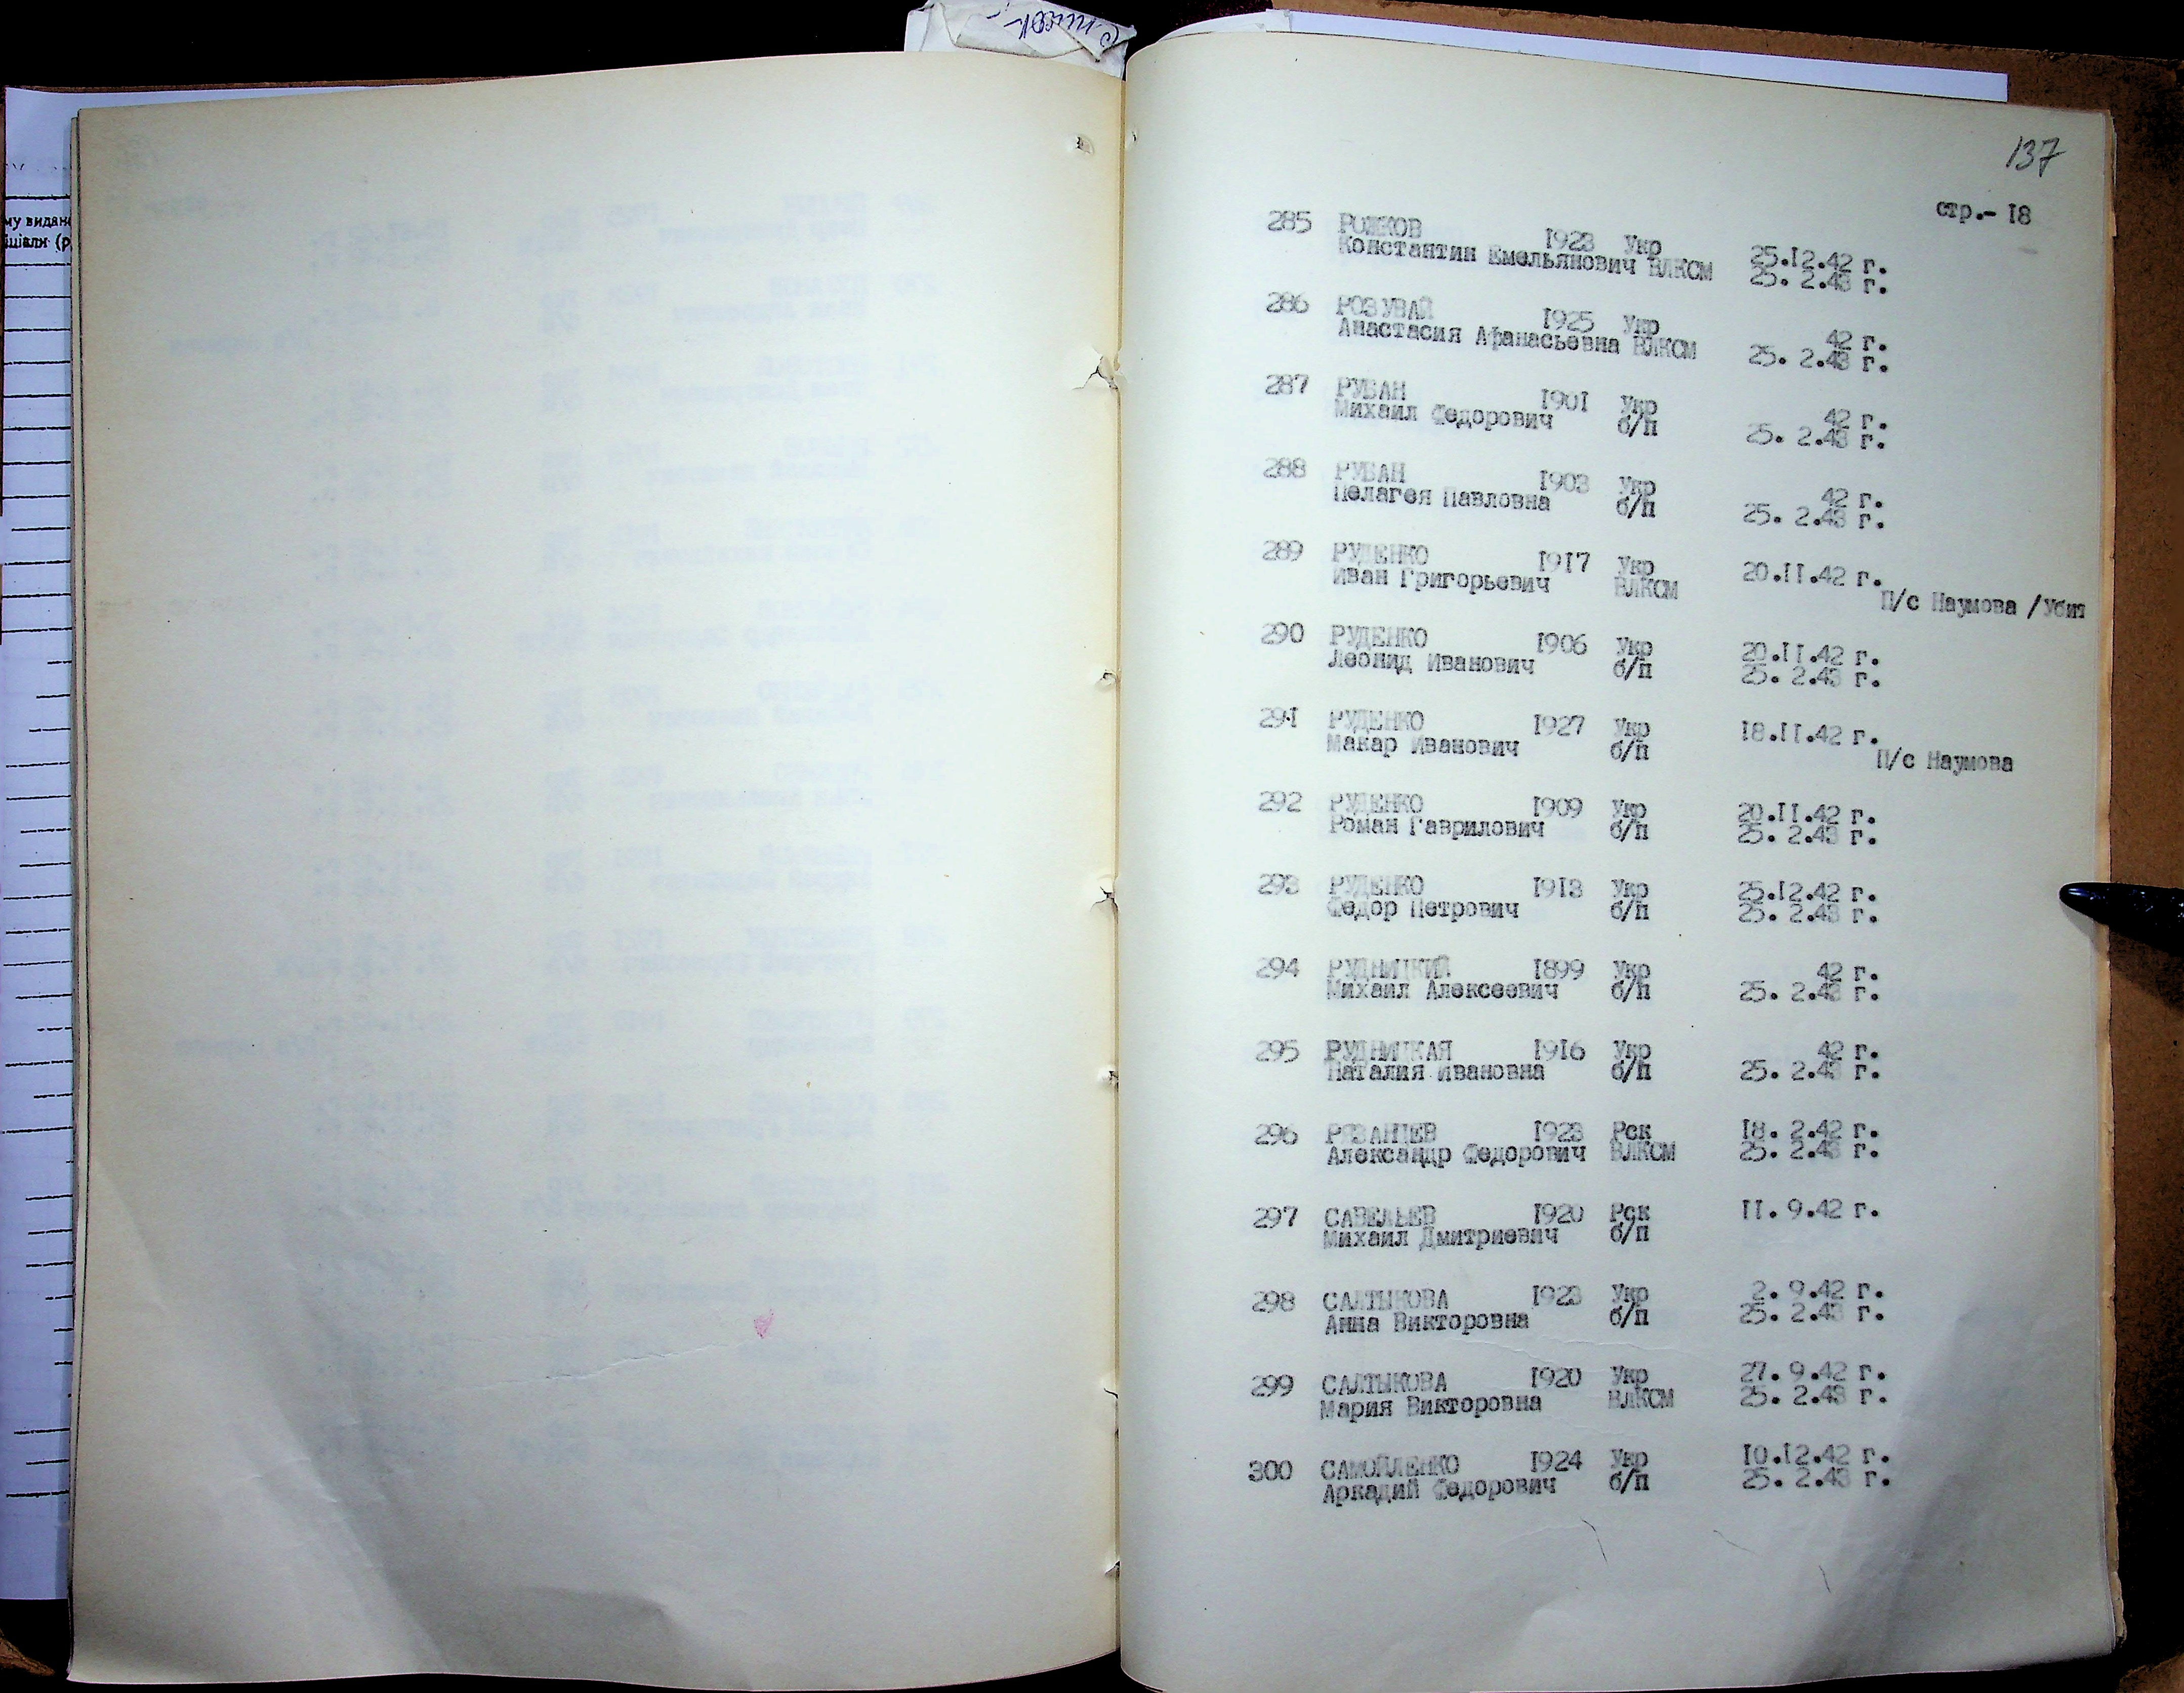 137
стр.- 18
285 РОЖКОВ 1923 Укр 25.12.42 г.
Константин Емельянович ВЛКСМ 25. 2.43 г.
286 РОЗУВАЙ 1925 Укр 42 г.
Анастасия Афанасьевна ВЛКСМ 25. 2.43 г.
287 РУБАН 1901 Укр 42 г.
Михаил Федорович б/п 25. 2.43 г.
288 РУБАН 1903 Укр 42 г.
Пелагея Павловна б/п 25. 2.43 г.
289 РУДЕНКО 1917 Укр 20.11.42 г.
Иван Григорьевич ВЛКСМ П/с Наумова /Убит
290 РУДЕНКО 1906 Укр 20.11.42 г.
Леонид Иванович б/п 25. 2.43 г.
291 РУДЕНКО 1927 Укр 18.11.42 г.
Макар Иванович б/п П/с Наумова
292 РУДЕНКО 1909 Укр 20.11.42 г.
Роман Гаврилович б/п 25. 2.43 г.
293 РУДЕНКО 1913 Укр 25.12.42 г.
Федор Петрович б/п 25. 2.43 г.
294 РУДНИЦКИЙ 1899 Укр 42 г.
Михаил Алексеевич б/п 25. 2.43 г.
295 РУДНИЦКАЯ 1916 Укр 42 г.
Наталия Ивановна б/п 25. 2.43 г.
296 РЯЗАНЦЕВ 1923 Рск 18. 2.42 г.
Александр Федорович ВЛКСМ 25. 2.43 г.
297 САВЕЛЬЕВ 1920 Рск 11. 9.42 г.
Михаил Дмитриевич б/п
298 САЛТЫКОВА 1923 Укр 2. 9.42 г.
Анна Викторовна б/п 25. 2.43 г.
299 САЛТЫКОВА 1920 Укр 27. 9.42 г.
Мария Викторовна ВЛКСМ 25. 2.43 г.
300 САМОЙЛЕНКО 1924 Укр 10.12.42 г.
Аркадий Федорович б/п 25. 2.43 г.